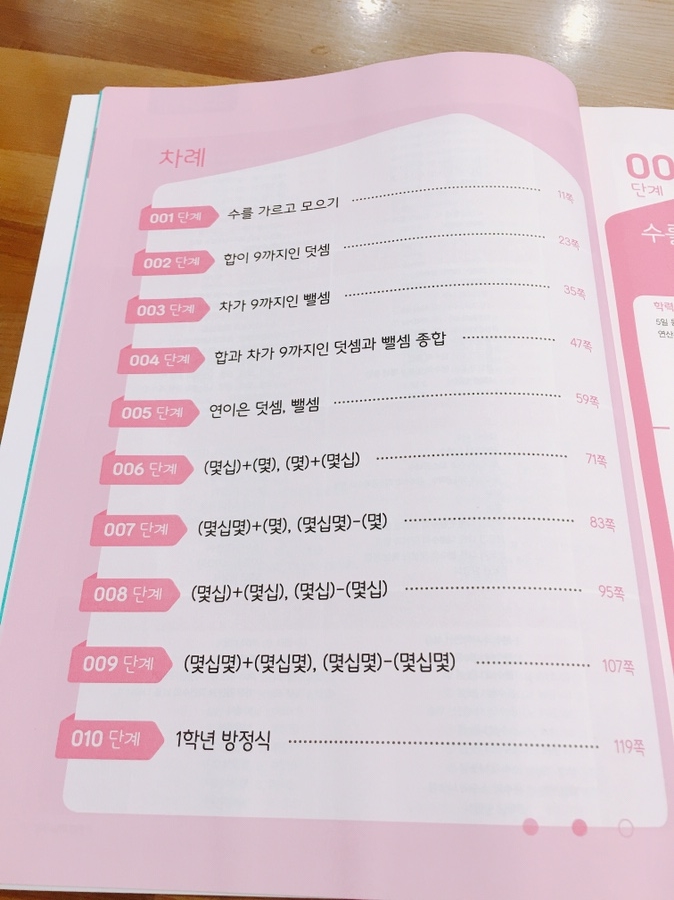 차례
001 단계 수를 가르고 모으기 11쪽
002 단계 합이 9까지인 덧셈 23쪽
003 단계 차가 9까지인 뺄셈 35쪽
004 단계 합과 차가 9까지인 덧셈과 뺄셈 종합 47쪽
005 단계 연이은 덧셈, 뺄셈 59쪽
006 단계 (몇십)+(몇), (몇)+(몇십) 71쪽
007 단계 (몇십몇)+(몇), (몇십몇)-(몇) 83쪽
008 단계 (몇십)+(몇십), (몇십)-(몇십) 95쪽
009 단계 (몇십몇)+(몇십몇), (몇십몇)-(몇십몇) 107쪽
010 단계 1학년 방정식 119쪽
00
단계
수를
학력
5일
연산